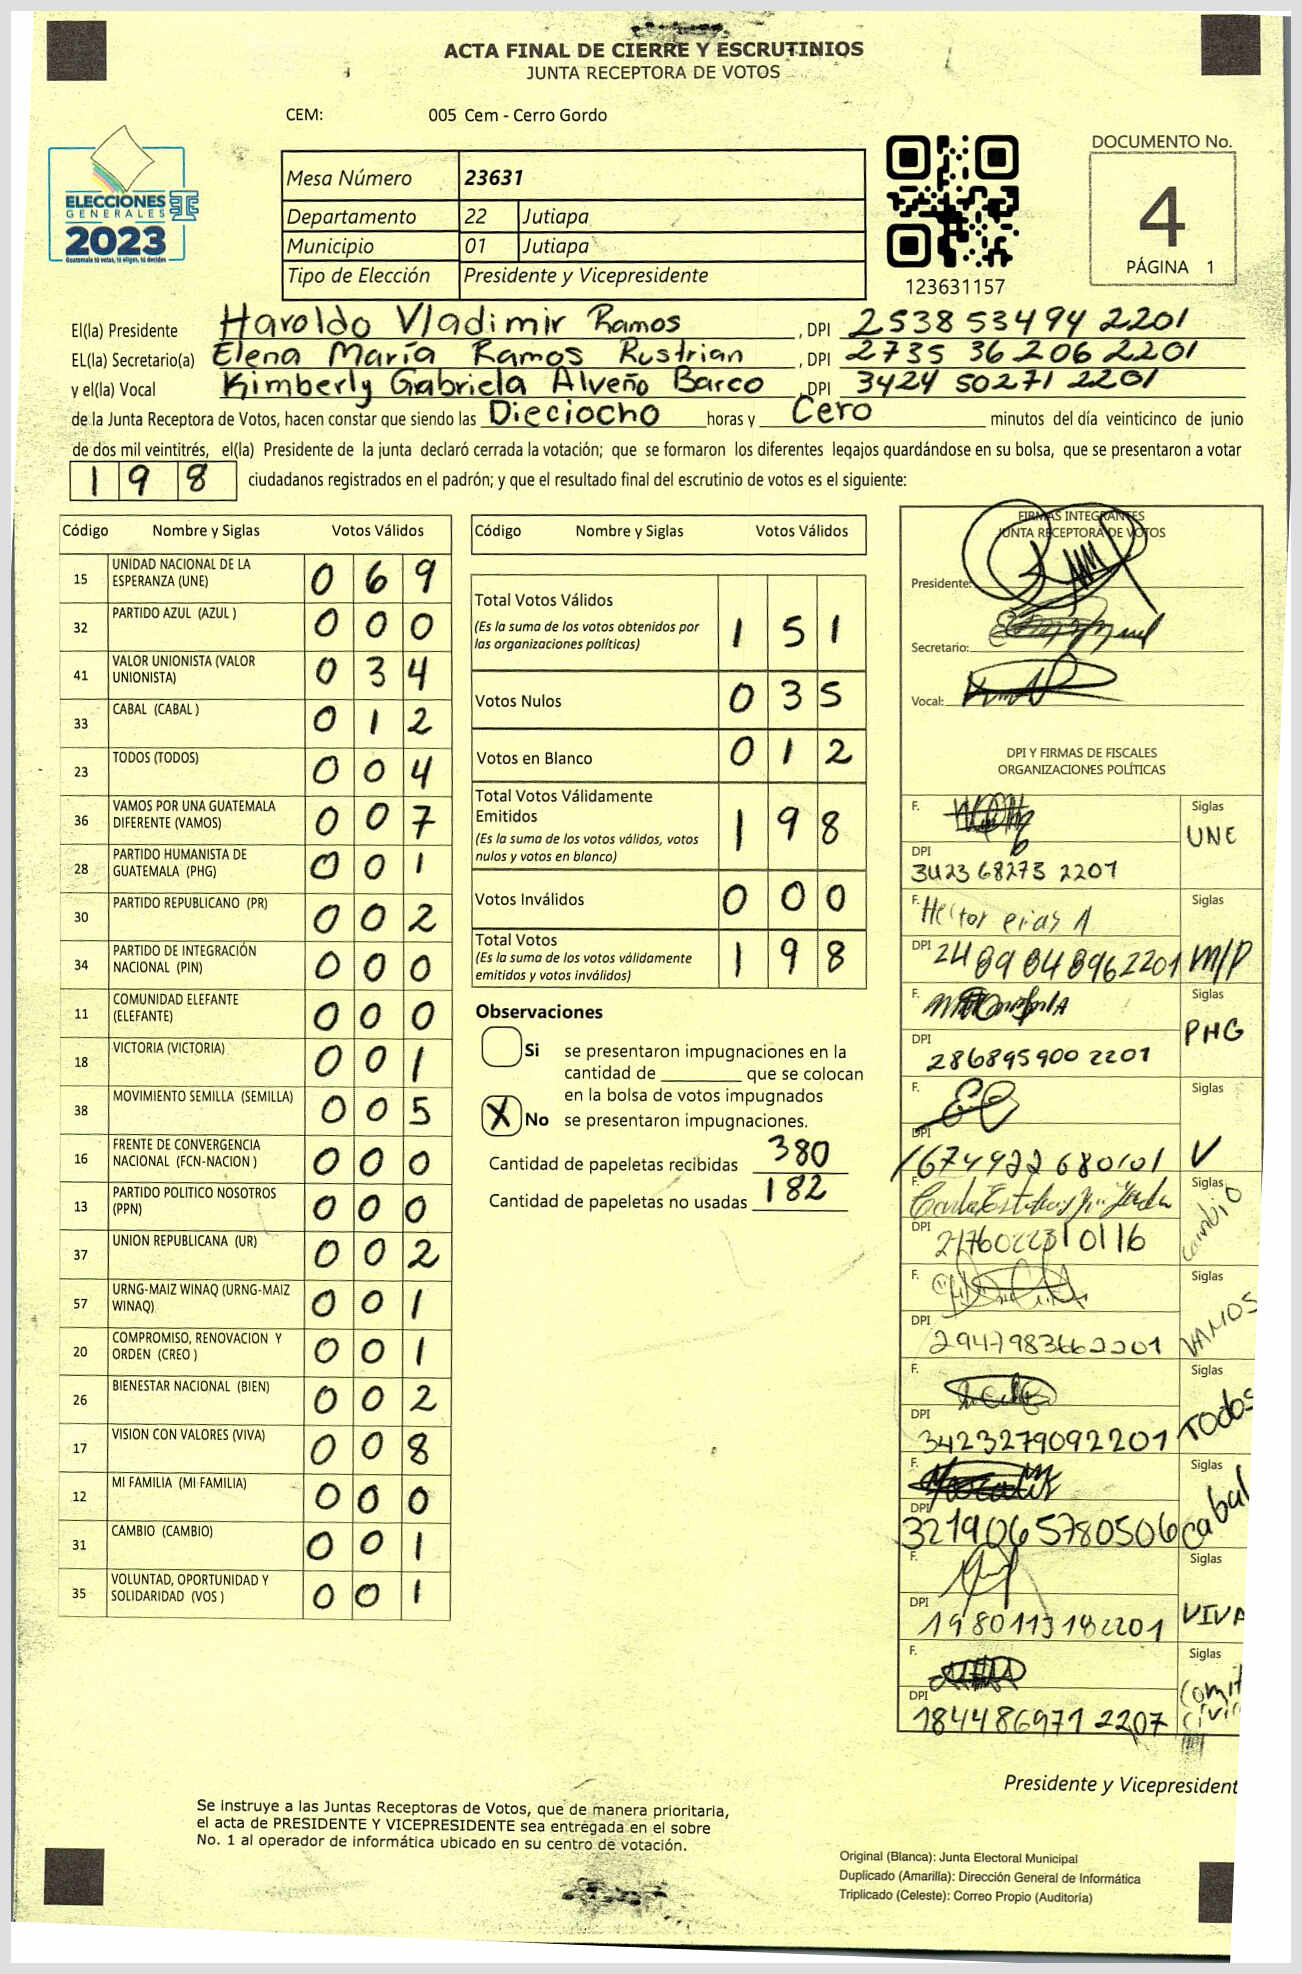 ACTA FINAL DE CIERRE Y ESCRUTINIOS
JUNTA RECEPTORA DE VOTOS
CEM: 005 Cem - Cerro Gordo
ELECCIONES
GENERALES
2023
Guatemala tú votas, tú eliges, tú decides
Mesa Número 23631
Departamento 22 Jutiapa
Municipio 01 Jutiapa
Tipo de Elección Presidente y Vicepresidente
123631157
DOCUMENTO No.
4
PÁGINA 1
El(la) Presidente Haroldo Vladimir Ramos , DPI 2538 53494 2201
EL(la) Secretario(a) Elena María Ramos Rustrian , DPI 2735 36206 2201
y el(la) Vocal Kimberly Gabriela Alveño Barco , DPI 3424 50271 2201
de la Junta Receptora de Votos, hacen constar que siendo las Dieciocho horas y Cero minutos del día veinticinco de junio
de dos mil veintitrés, el(la) Presidente de la junta declaró cerrada la votación; que se formaron los diferentes legajos guardándose en su bolsa, que se presentaron a votar
1 9 8 ciudadanos registrados en el padrón; y que el resultado final del escrutinio de votos es el siguiente:
Código Nombre y Siglas Votos Válidos
15 UNIDAD NACIONAL DE LA ESPERANZA (UNE) 0 6 9
32 PARTIDO AZUL (AZUL ) 0 0 0
41 VALOR UNIONISTA (VALOR UNIONISTA) 0 3 4
33 CABAL (CABAL ) 0 1 2
23 TODOS (TODOS) 0 0 4
36 VAMOS POR UNA GUATEMALA DIFERENTE (VAMOS) 0 0 7
28 PARTIDO HUMANISTA DE GUATEMALA (PHG) 0 0 1
30 PARTIDO REPUBLICANO (PR) 0 0 2
34 PARTIDO DE INTEGRACIÓN NACIONAL (PIN) 0 0 0
11 COMUNIDAD ELEFANTE (ELEFANTE) 0 0 0
18 VICTORIA (VICTORIA) 0 0 1
38 MOVIMIENTO SEMILLA (SEMILLA) 0 0 5
16 FRENTE DE CONVERGENCIA NACIONAL (FCN-NACION ) 0 0 0
13 PARTIDO POLITICO NOSOTROS (PPN) 0 0 0
37 UNION REPUBLICANA (UR) 0 0 2
57 URNG-MAIZ WINAQ (URNG-MAIZ WINAQ) 0 0 1
20 COMPROMISO, RENOVACION Y ORDEN (CREO ) 0 0 1
26 BIENESTAR NACIONAL (BIEN) 0 0 2
17 VISION CON VALORES (VIVA) 0 0 8
12 MI FAMILIA (MI FAMILIA) 0 0 0
31 CAMBIO (CAMBIO) 0 0 1
35 VOLUNTAD, OPORTUNIDAD Y SOLIDARIDAD (VOS ) 0 0 1
Código Nombre y Siglas Votos Válidos
Total Votos Válidos 1 5 1
(Es la suma de los votos obtenidos por
las organizaciones políticas)
Votos Nulos 0 3 5
Votos en Blanco 0 1 2
Total Votos Válidamente
Emitidos 1 9 8
(Es la suma de los votos válidos, votos
nulos y votos en blanco)
Votos Inválidos 0 0 0
Total Votos 1 9 8
(Es la suma de los votos válidamente
emitidos y votos inválidos)
Observaciones
Si se presentaron impugnaciones en la
cantidad de ________ que se colocan
en la bolsa de votos impugnados
X No se presentaron impugnaciones.
Cantidad de papeletas recibidas 380
Cantidad de papeletas no usadas 182
FIRMAS INTEGRANTES
JUNTA RECEPTORA DE VOTOS
Presidente:
Secretario:
Vocal:
DPI Y FIRMAS DE FISCALES
ORGANIZACIONES POLÍTICAS
F. Siglas UNE
DPI 3423 68273 2201
F. Hector erias A Siglas M/P
DPI 2489 84896 2201
F. Siglas PHG
DPI 286895900 2201
F. Siglas V
DPI 1674922 680101
F. Siglas cambio
DPI 2176022310116
F. Siglas VAMOS
DPI 2947983662201
F. Siglas TODOS
DPI 3423279092201
F. Siglas cabal
DPI 3219065780506
F. Siglas VIVA
DPI 1980113182201
F. Siglas
DPI 184486971 2207
Presidente y Vicepresident
Se instruye a las Juntas Receptoras de Votos, que de manera prioritaria,
el acta de PRESIDENTE Y VICEPRESIDENTE sea entregada en el sobre
No. 1 al operador de informática ubicado en su centro de votación.
Original (Blanca): Junta Electoral Municipal
Duplicado (Amarilla): Dirección General de Informática
Triplicado (Celeste): Correo Propio (Auditoría)